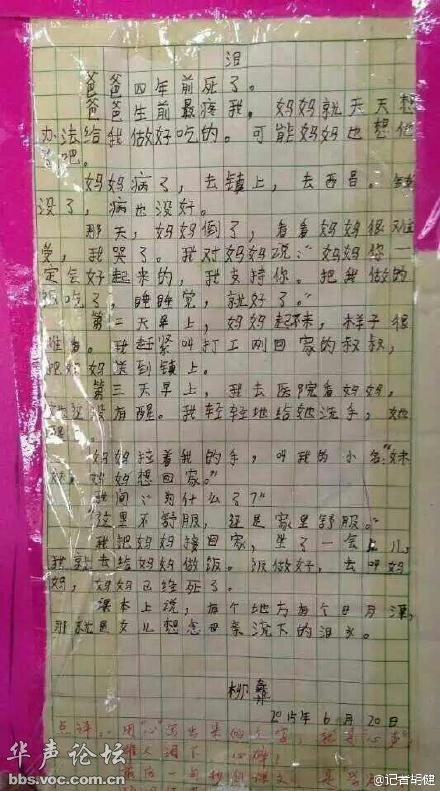 泪
爸爸四年前死了。
爸爸生前最疼我。妈妈就天天想
办法给我做好吃的。可能妈妈也想他
了吧。
妈妈病了，去镇上，去西昌。钱
没了，病也没好。
那天，妈妈倒了，看着妈妈很难
受，我哭了。我对妈妈说：“妈妈你一
定会好起来的，我支持你。把我做的
饭吃了，睡睡觉，就好了。”
第二天早上，妈妈起不来，样子很
难看。我赶紧叫打工刚回家的叔叔，
把妈妈送到镇上。
第三天早上，我去医院看妈妈，
她还没有醒。我轻轻地给她洗手，她
醒了。
妈妈拉着我的手，叫我的小名：“妹
妹，妈妈想回家。”
我问：“为什么了？”
“这里不舒服，还是家里舒服。”
我把妈妈接回家，坐了一会儿，
我就去给妈妈做饭。饭做好，去叫妈
妈，妈妈已经死了。
课本上说，有个地方有个日月潭，
那就是女儿想念母亲流下的泪水。
2015年6月20日
点评：用“心”写出来的
华声论坛
bbs.voc.com.cn
@记者胡健